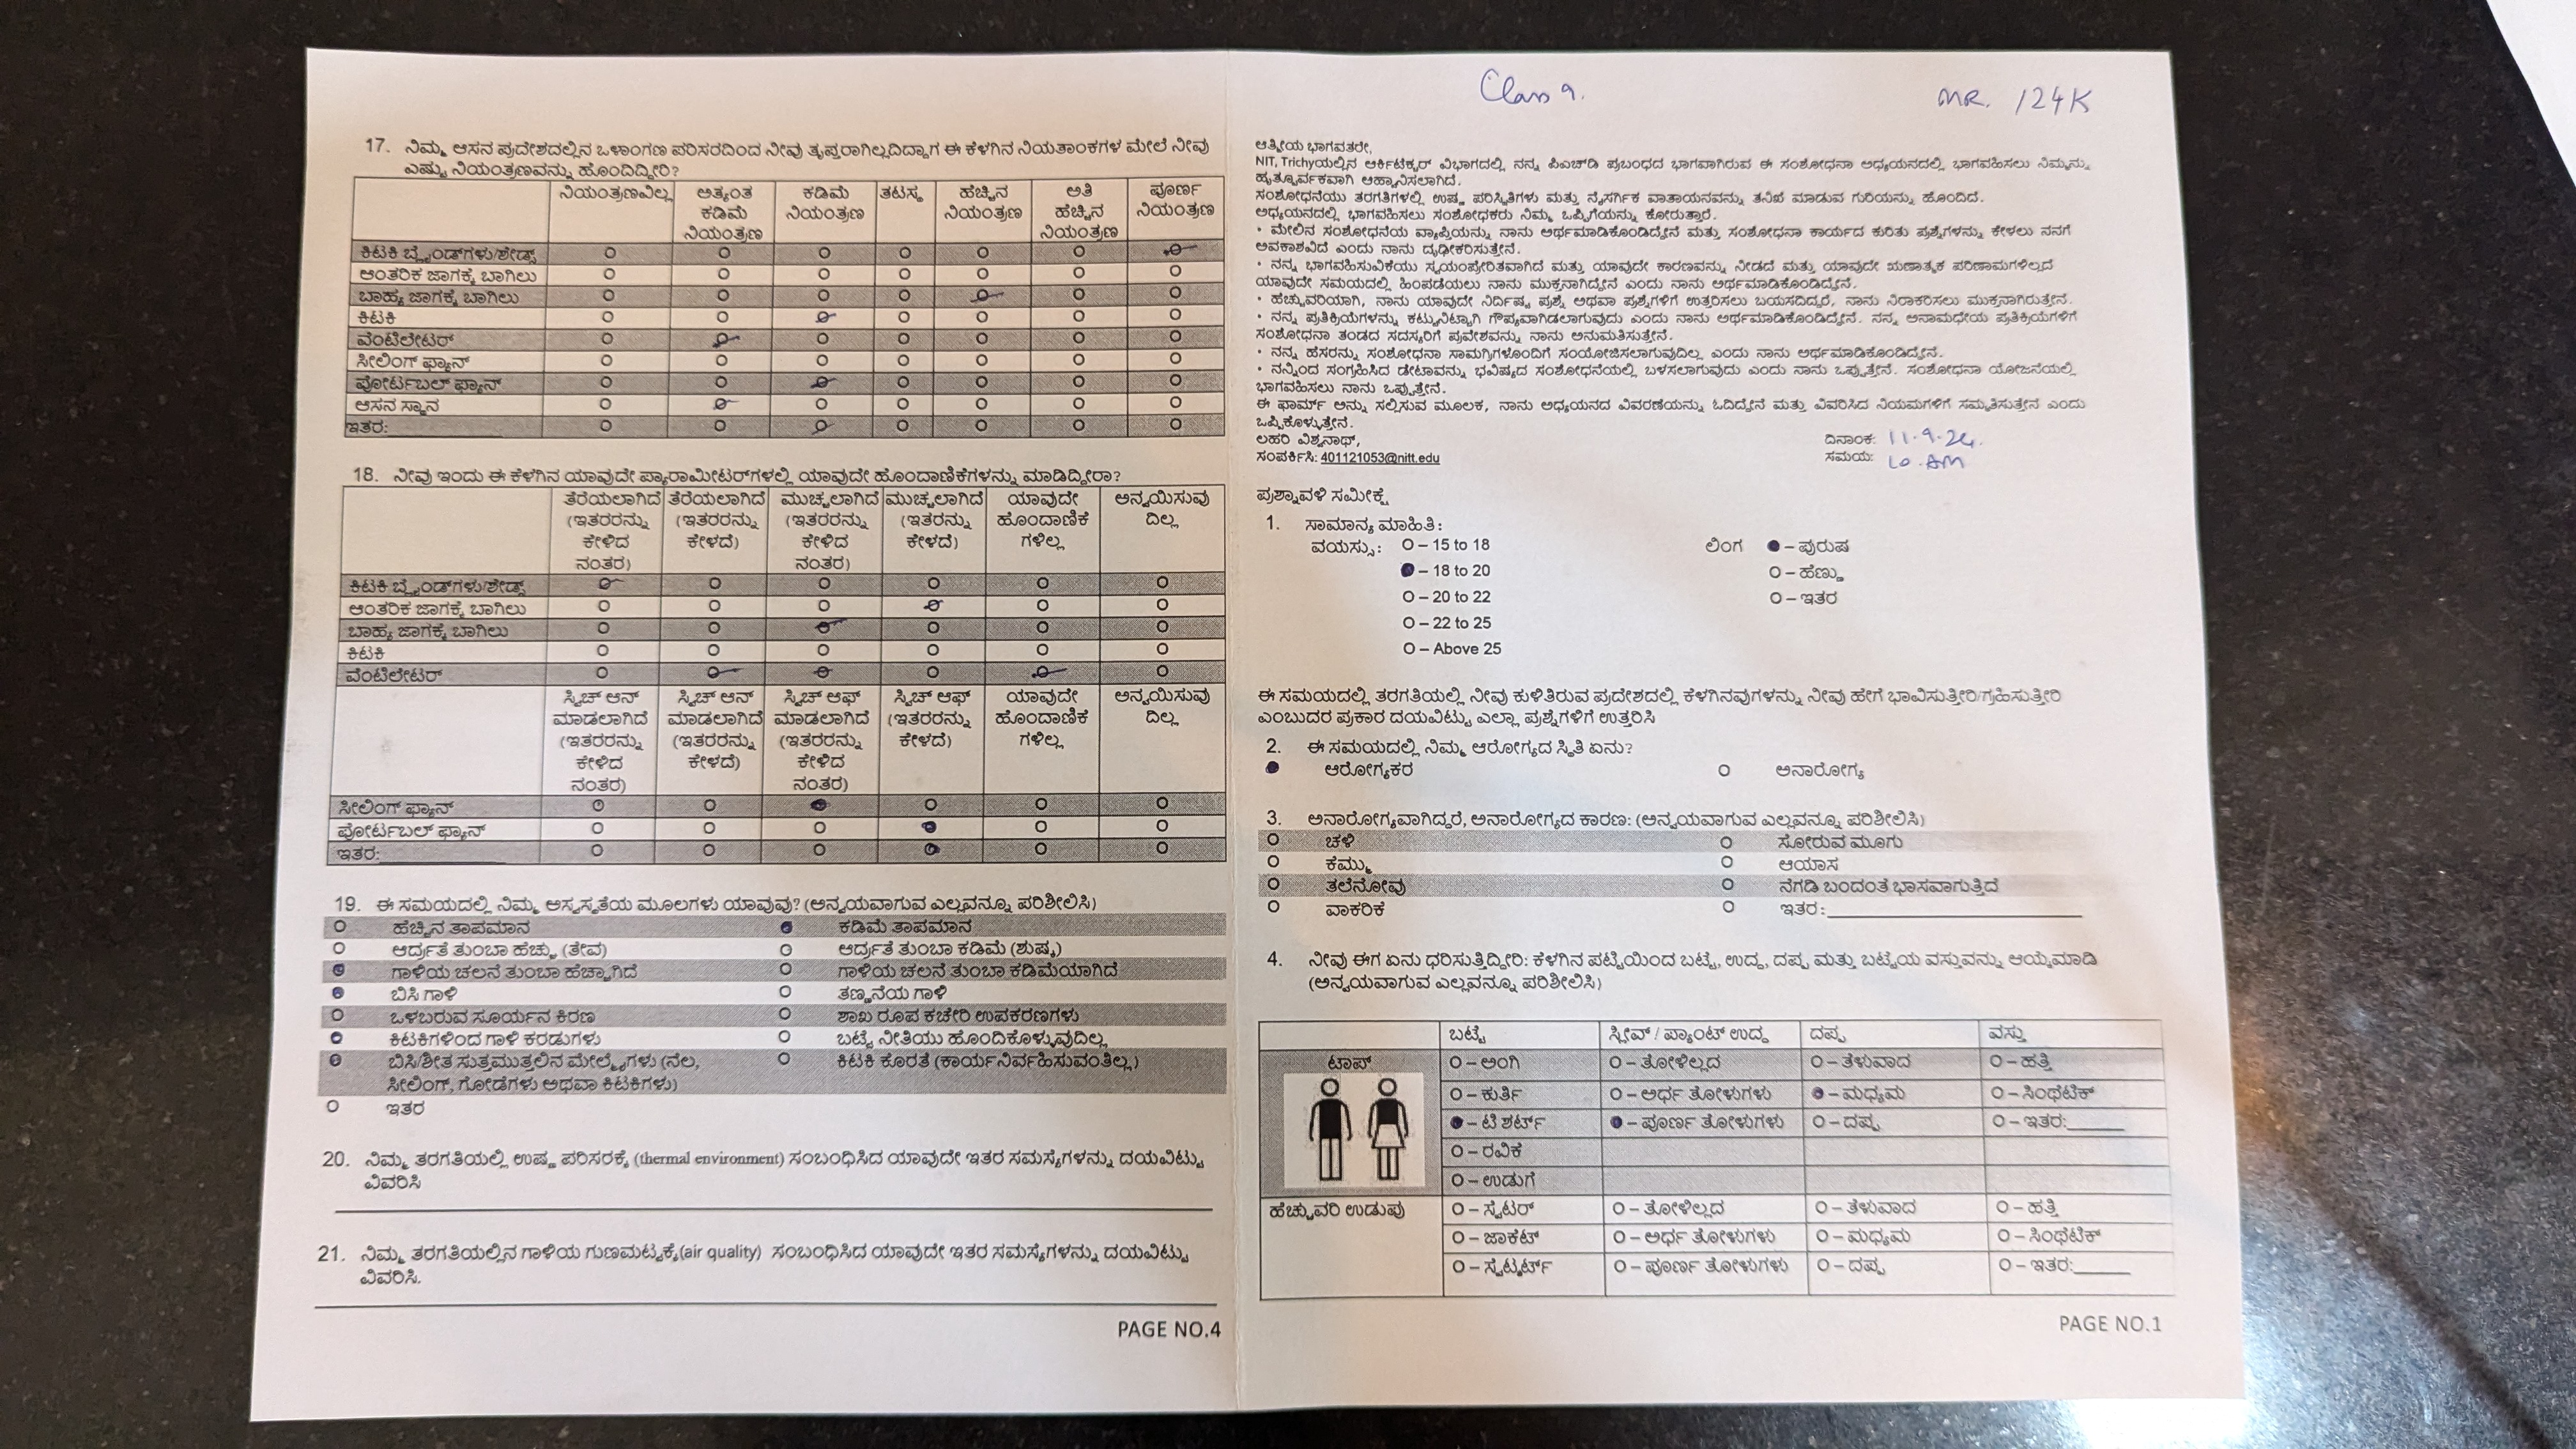 17. ನಿಮ್ಮ ಆಸನ ಪ್ರದೇಶದಲ್ಲಿನ ಒಳಾಂಗಣ ಪರಿಸರದಿಂದ ನೀವು ತೃಪ್ತರಾಗಿಲ್ಲದಿದ್ದಾಗ ಈ ಕೆಳಗಿನ ನಿಯತಾಂಕಗಳ ಮೇಲೆ ನೀವು
ಎಷ್ಟು ನಿಯಂತ್ರಣವನ್ನು ಹೊಂದಿದ್ದೀರಿ?
ನಿಯಂತ್ರಣವಿಲ್ಲ ಅತ್ಯಂತ ಕಡಿಮೆ ನಿಯಂತ್ರಣ ಕಡಿಮೆ ನಿಯಂತ್ರಣ ತಟಸ್ಥ ಹೆಚ್ಚಿನ ನಿಯಂತ್ರಣ ಅತಿ ಹೆಚ್ಚಿನ ನಿಯಂತ್ರಣ ಪೂರ್ಣ ನಿಯಂತ್ರಣ
ಕಿಟಕಿ ಬ್ಲೈಂಡ್‌ಗಳು/ಶೇಡ್ಸ್
ಆಂತರಿಕ ಜಾಗಕ್ಕೆ ಬಾಗಿಲು
ಬಾಹ್ಯ ಜಾಗಕ್ಕೆ ಬಾಗಿಲು
ಕಿಟಕಿ
ವೆಂಟಿಲೇಟರ್
ಸೀಲಿಂಗ್ ಫ್ಯಾನ್
ಪೋರ್ಟಬಲ್ ಫ್ಯಾನ್
ಆಸನ ಸ್ಥಾನ
ಇತರ:
18. ನೀವು ಇಂದು ಈ ಕೆಳಗಿನ ಯಾವುದೇ ಪ್ಯಾರಾಮೀಟರ್‌ಗಳಲ್ಲಿ ಯಾವುದೇ ಹೊಂದಾಣಿಕೆಗಳನ್ನು ಮಾಡಿದ್ದೀರಾ?
ತೆರೆಯಲಾಗಿದೆ (ಇತರರನ್ನು ಕೇಳಿದ ನಂತರ) ತೆರೆಯಲಾಗಿದೆ (ಇತರರನ್ನು ಕೇಳದೆ) ಮುಚ್ಚಲಾಗಿದೆ (ಇತರರನ್ನು ಕೇಳಿದ ನಂತರ) ಮುಚ್ಚಲಾಗಿದೆ (ಇತರರನ್ನು ಕೇಳದೆ) ಯಾವುದೇ ಹೊಂದಾಣಿಕೆ ಗಳಿಲ್ಲ ಅನ್ವಯಿಸುವು ದಿಲ್ಲ
ಕಿಟಕಿ ಬ್ಲೈಂಡ್‌ಗಳು/ಶೇಡ್ಸ್
ಆಂತರಿಕ ಜಾಗಕ್ಕೆ ಬಾಗಿಲು
ಬಾಹ್ಯ ಜಾಗಕ್ಕೆ ಬಾಗಿಲು
ಕಿಟಕಿ
ವೆಂಟಿಲೇಟರ್
ಸ್ವಿಚ್ ಆನ್ ಮಾಡಲಾಗಿದೆ (ಇತರರನ್ನು ಕೇಳಿದ ನಂತರ) ಸ್ವಿಚ್ ಆನ್ ಮಾಡಲಾಗಿದೆ (ಇತರರನ್ನು ಕೇಳದೆ) ಸ್ವಿಚ್ ಆಫ್ ಮಾಡಲಾಗಿದೆ (ಇತರರನ್ನು ಕೇಳಿದ ನಂತರ) ಸ್ವಿಚ್ ಆಫ್ (ಇತರರನ್ನು ಕೇಳದೆ) ಯಾವುದೇ ಹೊಂದಾಣಿಕೆ ಗಳಿಲ್ಲ ಅನ್ವಯಿಸುವು ದಿಲ್ಲ
ಸೀಲಿಂಗ್ ಫ್ಯಾನ್
ಪೋರ್ಟಬಲ್ ಫ್ಯಾನ್
ಇತರ:
19. ಈ ಸಮಯದಲ್ಲಿ ನಿಮ್ಮ ಅಸ್ವಸ್ಥತೆಯ ಮೂಲಗಳು ಯಾವುವು? (ಅನ್ವಯವಾಗುವ ಎಲ್ಲವನ್ನೂ ಪರಿಶೀಲಿಸಿ)
ಹೆಚ್ಚಿನ ತಾಪಮಾನ ಕಡಿಮೆ ತಾಪಮಾನ
ಆರ್ದ್ರತೆ ತುಂಬಾ ಹೆಚ್ಚು (ತೇವ) ಆರ್ದ್ರತೆ ತುಂಬಾ ಕಡಿಮೆ (ಶುಷ್ಕ)
ಗಾಳಿಯ ಚಲನೆ ತುಂಬಾ ಹೆಚ್ಚಾಗಿದೆ ಗಾಳಿಯ ಚಲನೆ ತುಂಬಾ ಕಡಿಮೆಯಾಗಿದೆ
ಬಿಸಿ ಗಾಳಿ ತಣ್ಣನೆಯ ಗಾಳಿ
ಒಳಬರುವ ಸೂರ್ಯನ ಕಿರಣ ಶಾಖ ರೂಪ ಕಚೇರಿ ಉಪಕರಣಗಳು
ಕಿಟಕಿಗಳಿಂದ ಗಾಳಿ ಕರಡುಗಳು ಬಟ್ಟೆ ನೀತಿಯು ಹೊಂದಿಕೊಳ್ಳುವುದಿಲ್ಲ
ಬಿಸಿ/ಶೀತ ಸುತ್ತಮುತ್ತಲಿನ ಮೇಲ್ಮೈಗಳು (ನೆಲ, ಕಿಟಕಿ ಕೊರತೆ (ಕಾರ್ಯನಿರ್ವಹಿಸುವಂತಿಲ್ಲ)
ಸೀಲಿಂಗ್, ಗೋಡೆಗಳು ಅಥವಾ ಕಿಟಕಿಗಳು)
ಇತರ
20. ನಿಮ್ಮ ತರಗತಿಯಲ್ಲಿ ಉಷ್ಣ ಪರಿಸರಕ್ಕೆ (thermal environment) ಸಂಬಂಧಿಸಿದ ಯಾವುದೇ ಇತರ ಸಮಸ್ಯೆಗಳನ್ನು ದಯವಿಟ್ಟು
ವಿವರಿಸಿ
21. ನಿಮ್ಮ ತರಗತಿಯಲ್ಲಿನ ಗಾಳಿಯ ಗುಣಮಟ್ಟಕ್ಕೆ(air quality) ಸಂಬಂಧಿಸಿದ ಯಾವುದೇ ಇತರ ಸಮಸ್ಯೆಗಳನ್ನು ದಯವಿಟ್ಟು
ವಿವರಿಸಿ.
PAGE NO.4
Class 9.
MR. 124K
ಆತ್ಮೀಯ ಭಾಗವತರೇ,
NIT, Trichyಯಲ್ಲಿನ ಆರ್ಕಿಟೆಕ್ಚರ್ ವಿಭಾಗದಲ್ಲಿ ನನ್ನ ಪಿಎಚ್‌ಡಿ ಪ್ರಬಂಧದ ಭಾಗವಾಗಿರುವ ಈ ಸಂಶೋಧನಾ ಅಧ್ಯಯನದಲ್ಲಿ ಭಾಗವಹಿಸಲು ನಿಮ್ಮನ್ನು
ಹೃತ್ಪೂರ್ವಕವಾಗಿ ಆಹ್ವಾನಿಸಲಾಗಿದೆ.
ಸಂಶೋಧನೆಯು ತರಗತಿಗಳಲ್ಲಿ ಉಷ್ಣ ಪರಿಸ್ಥಿತಿಗಳು ಮತ್ತು ನೈಸರ್ಗಿಕ ವಾತಾಯನವನ್ನು ತನಿಖೆ ಮಾಡುವ ಗುರಿಯನ್ನು ಹೊಂದಿದೆ.
ಅಧ್ಯಯನದಲ್ಲಿ ಭಾಗವಹಿಸಲು ಸಂಶೋಧಕರು ನಿಮ್ಮ ಒಪ್ಪಿಗೆಯನ್ನು ಕೋರುತ್ತಾರೆ.
• ಮೇಲಿನ ಸಂಶೋಧನೆಯ ವ್ಯಾಪ್ತಿಯನ್ನು ನಾನು ಅರ್ಥಮಾಡಿಕೊಂಡಿದ್ದೇನೆ ಮತ್ತು ಸಂಶೋಧನಾ ಕಾರ್ಯದ ಕುರಿತು ಪ್ರಶ್ನೆಗಳನ್ನು ಕೇಳಲು ನನಗೆ
ಅವಕಾಶವಿದೆ ಎಂದು ನಾನು ದೃಢೀಕರಿಸುತ್ತೇನೆ.
• ನನ್ನ ಭಾಗವಹಿಸುವಿಕೆಯು ಸ್ವಯಂಪ್ರೇರಿತವಾಗಿದೆ ಮತ್ತು ಯಾವುದೇ ಕಾರಣವನ್ನು ನೀಡದೆ ಮತ್ತು ಯಾವುದೇ ಋಣಾತ್ಮಕ ಪರಿಣಾಮಗಳಿಲ್ಲದೆ
ಯಾವುದೇ ಸಮಯದಲ್ಲಿ ಹಿಂಪಡೆಯಲು ನಾನು ಮುಕ್ತನಾಗಿದ್ದೇನೆ ಎಂದು ನಾನು ಅರ್ಥಮಾಡಿಕೊಂಡಿದ್ದೇನೆ.
• ಹೆಚ್ಚುವರಿಯಾಗಿ, ನಾನು ಯಾವುದೇ ನಿರ್ದಿಷ್ಟ ಪ್ರಶ್ನೆ ಅಥವಾ ಪ್ರಶ್ನೆಗಳಿಗೆ ಉತ್ತರಿಸಲು ಬಯಸದಿದ್ದರೆ, ನಾನು ನಿರಾಕರಿಸಲು ಮುಕ್ತನಾಗಿರುತ್ತೇನೆ.
• ನನ್ನ ಪ್ರತಿಕ್ರಿಯೆಗಳನ್ನು ಕಟ್ಟುನಿಟ್ಟಾಗಿ ಗೌಪ್ಯವಾಗಿಡಲಾಗುವುದು ಎಂದು ನಾನು ಅರ್ಥಮಾಡಿಕೊಂಡಿದ್ದೇನೆ. ನನ್ನ ಅನಾಮಧೇಯ ಪ್ರತಿಕ್ರಿಯೆಗಳಿಗೆ
ಸಂಶೋಧನಾ ತಂಡದ ಸದಸ್ಯರಿಗೆ ಪ್ರವೇಶವನ್ನು ನಾನು ಅನುಮತಿಸುತ್ತೇನೆ.
• ನನ್ನ ಹೆಸರನ್ನು ಸಂಶೋಧನಾ ಸಾಮಗ್ರಿಗಳೊಂದಿಗೆ ಸಂಯೋಜಿಸಲಾಗುವುದಿಲ್ಲ ಎಂದು ನಾನು ಅರ್ಥಮಾಡಿಕೊಂಡಿದ್ದೇನೆ.
• ನನ್ನಿಂದ ಸಂಗ್ರಹಿಸಿದ ಡೇಟಾವನ್ನು ಭವಿಷ್ಯದ ಸಂಶೋಧನೆಯಲ್ಲಿ ಬಳಸಲಾಗುವುದು ಎಂದು ನಾನು ಒಪ್ಪುತ್ತೇನೆ. ಸಂಶೋಧನಾ ಯೋಜನೆಯಲ್ಲಿ
ಭಾಗವಹಿಸಲು ನಾನು ಒಪ್ಪುತ್ತೇನೆ.
ಈ ಫಾರ್ಮ್ ಅನ್ನು ಸಲ್ಲಿಸುವ ಮೂಲಕ, ನಾನು ಅಧ್ಯಯನದ ವಿವರಣೆಯನ್ನು ಓದಿದ್ದೇನೆ ಮತ್ತು ವಿವರಿಸಿದ ನಿಯಮಗಳಿಗೆ ಸಮ್ಮತಿಸುತ್ತೇನೆ ಎಂದು
ಒಪ್ಪಿಕೊಳ್ಳುತ್ತೇನೆ.
ಲಹರಿ ವಿಶ್ವನಾಥ್, ದಿನಾಂಕ: 11.9.24.
ಸಂಪರ್ಕಿಸಿ: 401121053@nitt.edu ಸಮಯ: 10 AM
ಪ್ರಶ್ನಾವಳಿ ಸಮೀಕ್ಷೆ
1. ಸಾಮಾನ್ಯ ಮಾಹಿತಿ:
ವಯಸ್ಸು: – 15 to 18 ಲಿಂಗ – ಪುರುಷ
– 18 to 20 – ಹೆಣ್ಣು
– 20 to 22 – ಇತರ
– 22 to 25
– Above 25
ಈ ಸಮಯದಲ್ಲಿ ತರಗತಿಯಲ್ಲಿ ನೀವು ಕುಳಿತಿರುವ ಪ್ರದೇಶದಲ್ಲಿ ಕೆಳಗಿನವುಗಳನ್ನು ನೀವು ಹೇಗೆ ಭಾವಿಸುತ್ತೀರಿ/ಗ್ರಹಿಸುತ್ತೀರಿ
ಎಂಬುದರ ಪ್ರಕಾರ ದಯವಿಟ್ಟು ಎಲ್ಲಾ ಪ್ರಶ್ನೆಗಳಿಗೆ ಉತ್ತರಿಸಿ
2. ಈ ಸಮಯದಲ್ಲಿ ನಿಮ್ಮ ಆರೋಗ್ಯದ ಸ್ಥಿತಿ ಏನು?
ಆರೋಗ್ಯಕರ ಅನಾರೋಗ್ಯ
3. ಅನಾರೋಗ್ಯವಾಗಿದ್ದರೆ, ಅನಾರೋಗ್ಯದ ಕಾರಣ: (ಅನ್ವಯವಾಗುವ ಎಲ್ಲವನ್ನೂ ಪರಿಶೀಲಿಸಿ)
ಚಳಿ ಸೋರುವ ಮೂಗು
ಕೆಮ್ಮು ಆಯಾಸ
ತಲೆನೋವು ನೆಗಡಿ ಬಂದಂತೆ ಭಾಸವಾಗುತ್ತಿದೆ
ವಾಕರಿಕೆ ಇತರ:
4. ನೀವು ಈಗ ಏನು ಧರಿಸುತ್ತಿದ್ದೀರಿ: ಕೆಳಗಿನ ಪಟ್ಟಿಯಿಂದ ಬಟ್ಟೆ, ಉದ್ದ, ದಪ್ಪ ಮತ್ತು ಬಟ್ಟೆಯ ವಸ್ತುವನ್ನು ಆಯ್ಕೆಮಾಡಿ
(ಅನ್ವಯವಾಗುವ ಎಲ್ಲವನ್ನೂ ಪರಿಶೀಲಿಸಿ)
ಬಟ್ಟೆ ಸ್ಲೀವ್ / ಪ್ಯಾಂಟ್ ಉದ್ದ ದಪ್ಪ ವಸ್ತು
ಟಾಪ್ – ಅಂಗಿ – ತೋಳಿಲ್ಲದ – ತೆಳುವಾದ – ಹತ್ತಿ
– ಕುರ್ತಿ – ಅರ್ಧ ತೋಳುಗಳು – ಮಧ್ಯಮ – ಸಿಂಥೆಟಿಕ್
– ಟಿ ಶರ್ಟ್ – ಪೂರ್ಣ ತೋಳುಗಳು – ದಪ್ಪ – ಇತರ:
– ರವಿಕೆ
– ಉಡುಗೆ
ಹೆಚ್ಚುವರಿ ಉಡುಪು – ಸ್ವೆಟರ್ – ತೋಳಿಲ್ಲದ – ತೆಳುವಾದ – ಹತ್ತಿ
– ಜಾಕೆಟ್ – ಅರ್ಧ ತೋಳುಗಳು – ಮಧ್ಯಮ – ಸಿಂಥೆಟಿಕ್
– ಸ್ವೆಟ್ಶರ್ಟ್ – ಪೂರ್ಣ ತೋಳುಗಳು – ದಪ್ಪ – ಇತರ:
PAGE NO.1